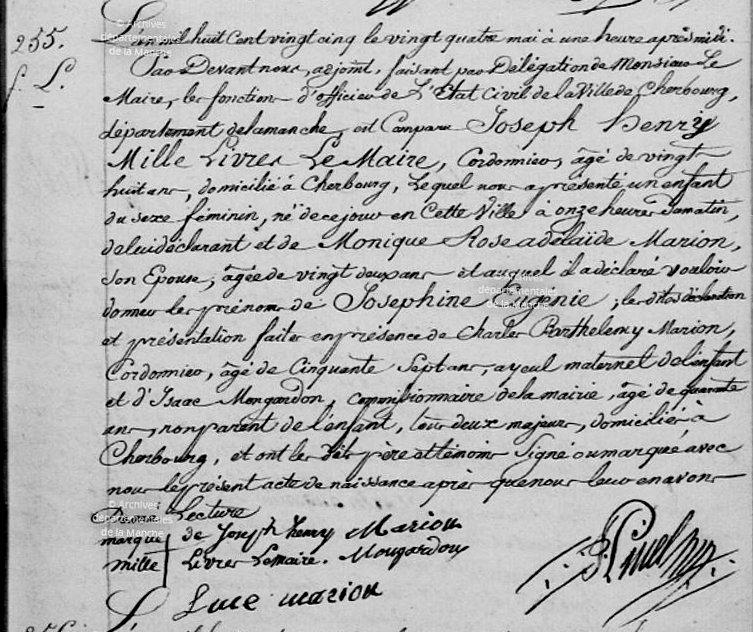 255.
f. L.
L'an mil huit Cent vingt cinq le vingt quatre mai à une heure après midi.
Par Devant nous, adjoint, faisant par Délégation de Monsieur Le
Maire, les fonctions d'officier de L'Etat Civil de la Ville de Cherbourg,
département de la manche, est Comparu Joseph Henry
Mille Livres Le Maire, Cordonnier, âgé de vingt
huit ans, domicilié à Cherbourg, Lequel nous a présenté un enfant
du sexe féminin, né de ce jour en Cette Ville à onze heures du matin,
de lui déclarant et de Monique Rose adélaïde Marion,
son Epouse, âgée de vingt deux ans et auquel il a déclaré vouloir
donner les prénoms de Josephine Eugenie; les dites déclaration
et présentation faites en présence de Charles Barthelemy Marion,
Cordonnier, âgé de Cinquante Sept ans, ayeul maternel de l'enfant
et d'Isaac Mongardon, Commissionnaire de la mairie, âgé de quarante
ans, non parent de l'enfant, tous deux majeurs, domiciliés à
Cherbourg, et ont les dits père et témoins Signé ou marqué avec
nous le présent acte de naissance après que nous leur en avons
Donné Lecture
marque de Joseph henry Marion
mille Livres Lemaire. Mougardon
Luce marion
© Archives
départementales
de la Manche
© Archives
départementales
de la Manche
© Archives
départementales
de la Manche